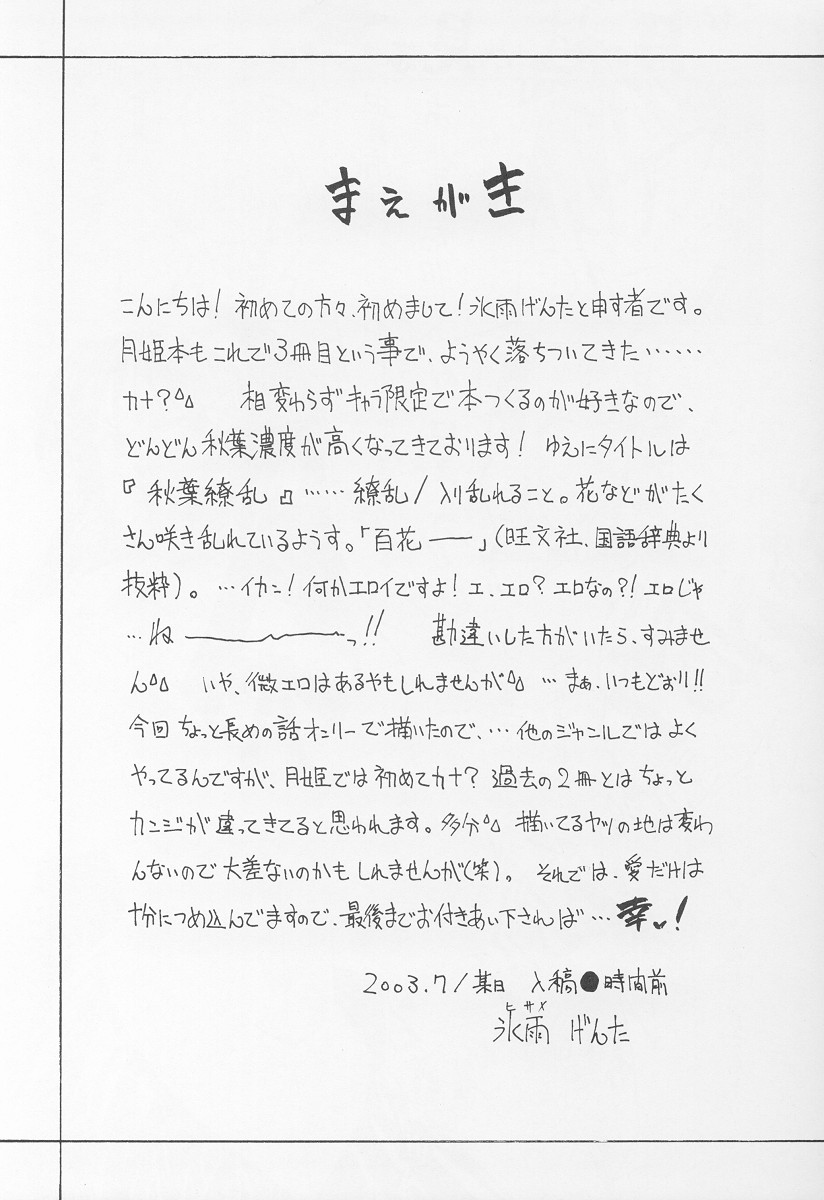 まえがき
こんにちは！ 初めての方々、初めまして！氷雨げんたと申す者です。
月姫本もこれで3冊目という事で、ようやく落ちついてきた……
カナ？ 相変わらずキャラ限定で本つくるのが好きなので、
どんどん秋葉濃度が高くなってきております！ ゆえにタイトルは
『秋葉繚乱』……繚乱/入り乱れること。花などがたく
さん咲き乱れているようす。「百花──」(旺文社、国語辞典より
抜粋)。…イカン！何かエロイですよ！エ、エロ？エロなの？！エロじゃ
…ね────っ!! 勘違いした方がいたら、すみませ
ん いや、微エロはあるやもしれませんが …まぁ、いつもどおり!!
今回ちょっと長めの話オンリーで描いたので、…他のジャンルではよく
やってるんですが、月姫では初めてカナ？過去の2冊とはちょっと
カンジが違ってきてると思われます。多分 描いてるヤツの地は変わ
んないので大差ないのかもしれませんが(笑)。それでは、愛だけは
十分につめ込んでますので、最後までお付きあい下されば…幸♥！
2003.7/某日 入稿●時間前
ヒサメ
氷雨 げんた